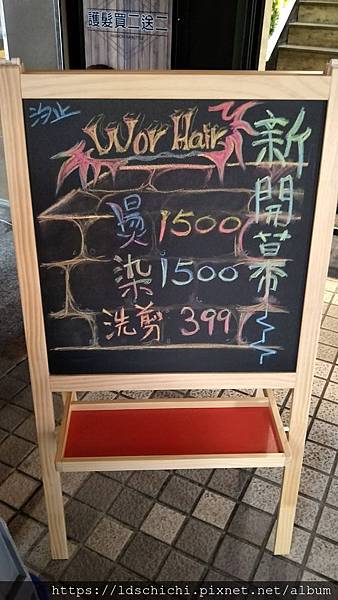 護髮買二送二
汐止
Wor Hair
新開幕
燙 1500
染 1500
洗剪 399
https://ldschichi.pixnet.net/album